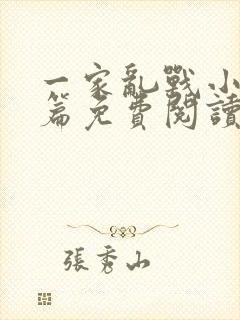 一家亂戰小
篇免費閱讀
張秀山